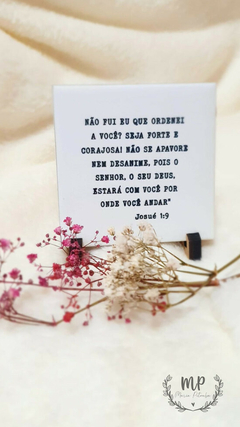 NÃO FUI EU QUE ORDENEI
A VOCÊ? SEJA FORTE E
CORAJOSA! NÃO SE APAVORE
NEM DESANIME, POIS O
SENHOR, O SEU DEUS,
ESTARÁ COM VOCÊ POR
ONDE VOCÊ ANDAR"
Josué 1:9
MP